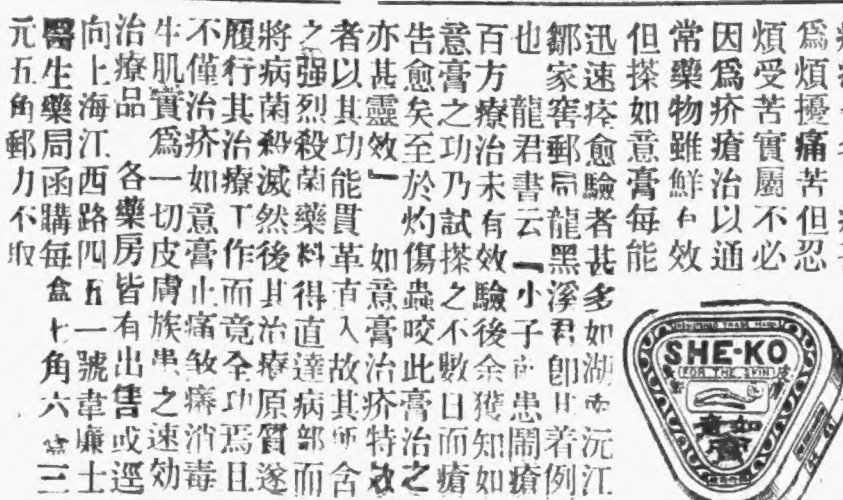 爲煩擾痛苦但忍
煩受苦實屬不必
因爲疥瘡治以通
常藥物雖鮮有效
但搽如意膏每能
迅速痊愈驗者甚多如湖南沅江
鄒家窖郵局龍黑溪君卽其着例
也　龍君書云『小子前患鬧瘡
百方療治未有效驗後余獲知如
意膏之功乃試搽之不數日而瘡
告愈矣至於灼傷蟲咬此膏治之
亦甚靈效』　如意膏治疥特效
者以其功能貫革直入故其所含
之强烈殺菌藥料得直達病部而
將病菌殺滅然後其治療原質遂
履行其治療工作而竟全功焉且
不僅治疥如意膏止痛敏癢消毒
生肌實爲一切皮膚族患之速効
治療品　各藥房皆有出售或逕
向上海江西路四五一號韋廉士
醫生藥局函購每盒七角六盒三
元五角郵力不取
REGISTERED TRADE MARK
SHE-KO
FOR THE SKIN
如意膏